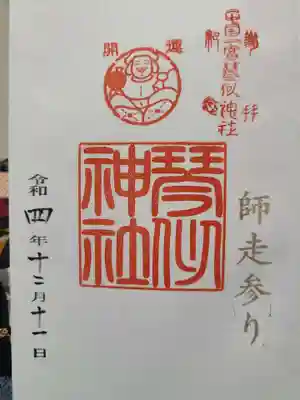 琴似神社
師走参り
開運
琴似
神社
令和四年十二月十一日